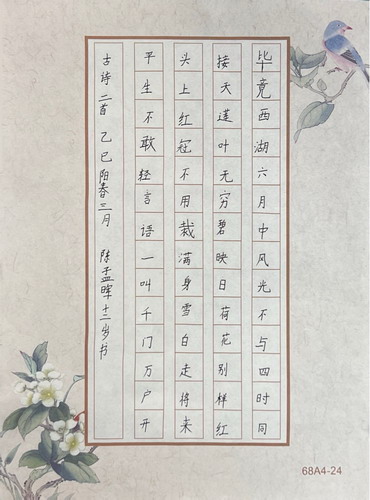 毕竟西湖六月中风光不与四时同
接天莲叶无穷碧映日荷花别样红
头上红冠不用裁满身雪白走将来
平生不敢轻言语一叫千门万户开
古诗二首 乙巳阳春三月 陈孟晖十二岁书
68A4-24